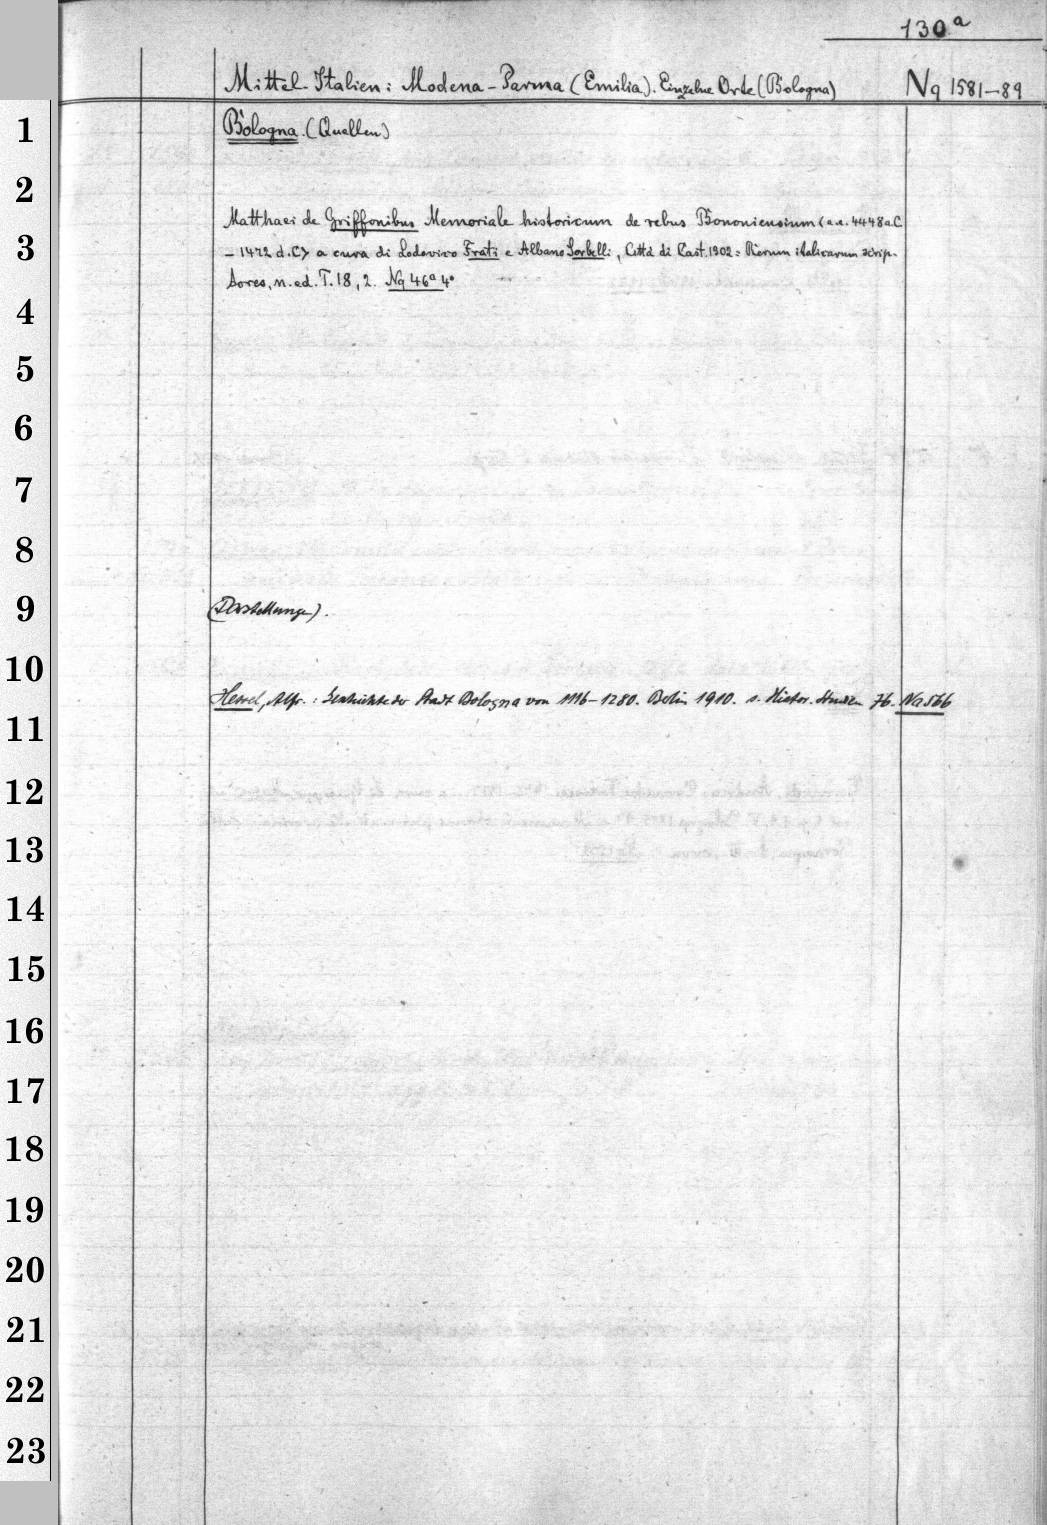 130a
Mittel-Italien: Modena-Parma (Emilia). Einzelne Orte (Bologna) Nq 1581-89
1 Bologna. (Quellen)
2
Matthaei de Griffonibus Memoriale historicum de rebus Bononiensium (a.e. 4448 a.C
3 - 1472 d.C) a cura di Lodovivo Frati e Albano Sorbelli, Città di Cast. 1902 = Rerum italicarum scrip-
tores, n. ed. T. 18, 2. Nq 46a 4°
4
5
6
7
8
9 (Darstellungen).
10
Hessel, Alfr.: Geschichte der Stadt Bologna von 1116-1280. Berlin 1910. s. Histor. Studien 76. Na 566
11
12
13
14
15
16
17
18
19
20
21
22
23